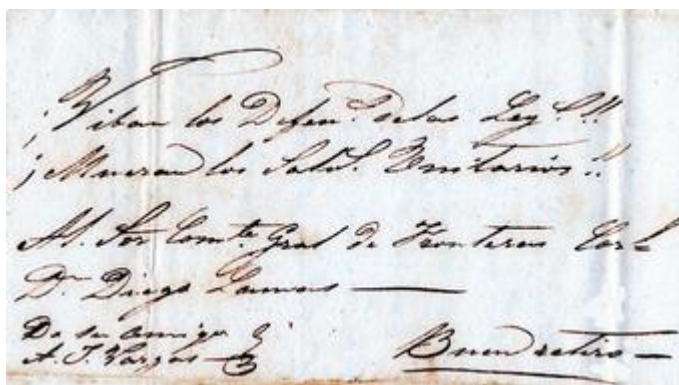 ¡Viban los Defen.s delas Ley.s!!
¡Mueran los Salv.s Unitarios!!
Al Sor Com.te Gral de Fronteras Cor.l
D.n Diego Lamas
De su amigo
A. T. Vargas
Buen retiro